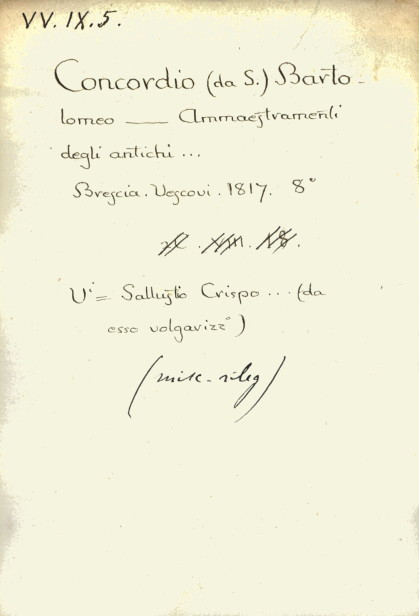 VV.IX.5.
Concordio (da S.) Barto-
lomeo — Ammaestramenti
degli antichi ...
Brescia. Vescovi. 1817. 8°
V¹ = Sallustio Crispo ... (da
esso volgarizz°)
(misc. rileg)